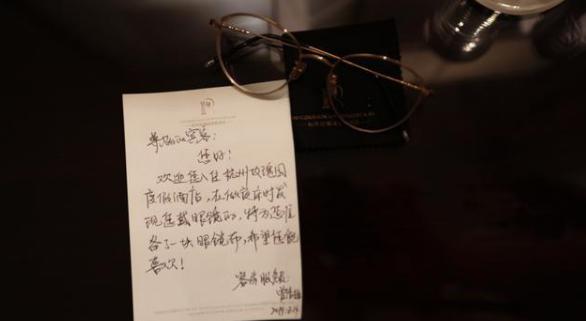 尊敬的宾客:
您好!
欢迎您入住杭州玫瑰园
度假酒店,在做夜床时发
现您戴眼镜的,特为您准
备了一块眼镜布,希望您能
喜欢!
客房服务员